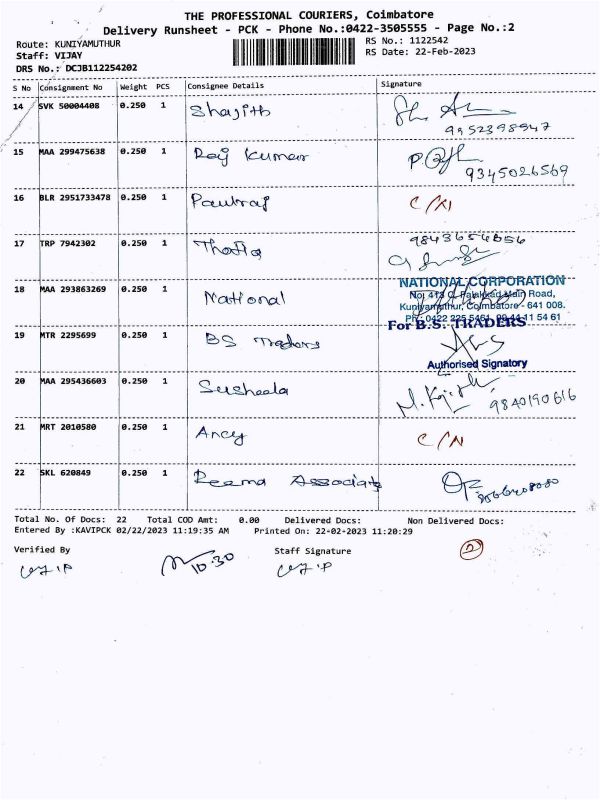 THE PROFESSIONAL COURIERS, Coimbatore
Delivery Runsheet - PCK - Phone No.:0422-3505555 - Page No.:2
Route: KUNIYAMUTHUR
RS No.: 1122542
Staff: VIJAY
RS Date: 22-Feb-2023
DRS No.: DCJB112254202
S No Consignment No Weight PCS Consignee Details Signature
14 SVK 50004408 0.250 1 Shajith
9952398947
15 MAA 299475638 0.250 1 Raj Kumar
9345026569
16 BLR 2951733478 0.250 1 Paulraj
17 TRP 7942302 0.250 1
9843654656
18 MAA 293863269 0.250 1 National
NATIONAL CORPORATION
Palakkad Main Road,
Kuniyamuthur, Coimbatore - 641 008.
19 MTR 2295699 0.250 1 BS Traders
For B.S. TRADERS
Authorised Signatory
20 MAA 295436603 0.250 1 Susheela
9840190616
21 MRT 2010580 0.250 1 Ancy
C/N
22 SKL 620849 0.250 1 Reema Associats
Total No. Of Docs: 22 Total COD Amt: 0.00 Delivered Docs: Non Delivered Docs:
Entered By :KAVIPCK 02/22/2023 11:19:35 AM Printed On: 22-02-2023 11:20:29
Verified By
Staff Signature
10.30
2